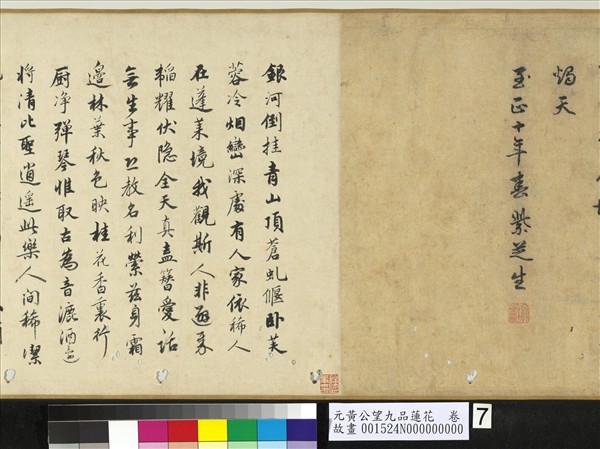 焬天
至正十年春紫芝生
銀河倒挂青山頂蒼虬偃卧芙
蓉冷烟巒深處有人家依稀人
在蓬萊境我觀斯人非避秦
韜耀伏隐全天真盍簪愛話
無生事忍教名利縈茲身霜
邊林葉秋色映桂花香裏行
厨净彈琴惟取古為音漉酒
將清比聖逍遥此樂人间稀潔
元黃公望九品蓮花 卷
故畫 001524N000000000
7